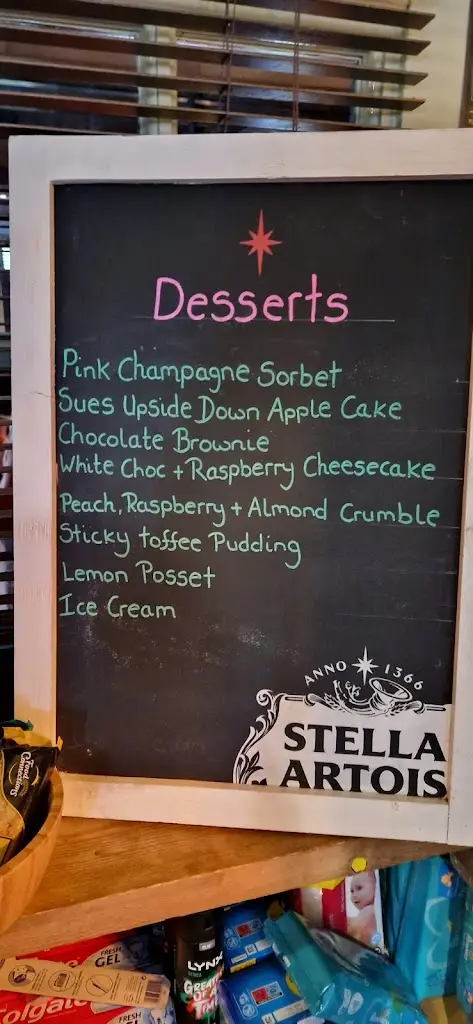 Desserts
Pink Champagne Sorbet
Sues Upside Down Apple Cake
Chocolate Brownie
White Choc + Raspberry Cheesecake
Peach, Raspberry + Almond Crumble
Sticky toffee Pudding
Lemon Posset
Ice Cream
ANNO 1366
STELLA
ARTOIS
FRESH
GEL
LYNX
Colgate
FRESH
GEL